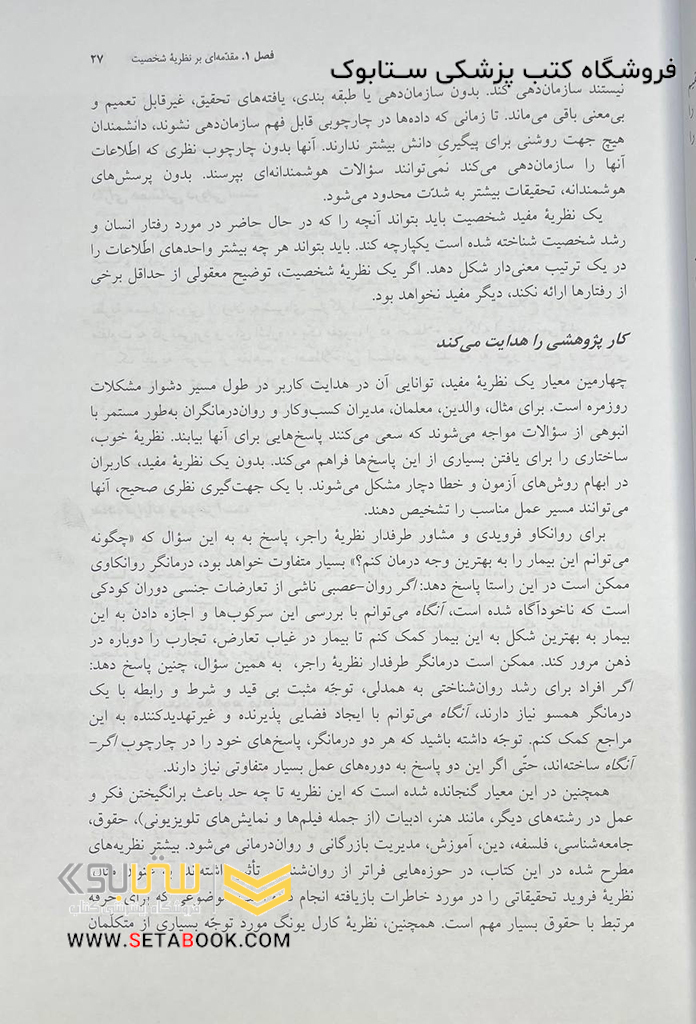 فصل ۱. مقدّمه‌ای بر نظریهٔ شخصیت ۲۷
فروشگاه کتب پزشکی ستابوک
نیستند سازمان‌دهی کند. بدون سازمان‌دهی یا طبقه بندی، یافته‌های تحقیق، غیرقابل تعمیم و
بی‌معنی باقی می‌ماند. تا زمانی که داده‌ها در چارچوبی قابل فهم سازمان‌دهی نشوند، دانشمندان
هیچ جهت روشنی برای پیگیری دانش بیشتر ندارند. آنها بدون چارچوب نظری که اطّلاعات
آنها را سازمان‌دهی می‌کند نمی‌توانند سؤالات هوشمندانه‌ای بپرسند. بدون پرسش‌های
هوشمندانه، تحقیقات بیشتر به شدّت محدود می‌شود.
یک نظریهٔ مفید شخصیت باید بتواند آنچه را که در حال حاضر در مورد رفتار انسان و
رشد شخصیت شناخته شده است یکپارچه کند. باید بتواند هر چه بیشتر واحدهای اطّلاعات را
در یک ترتیب معنی‌دار شکل دهد. اگر یک نظریهٔ شخصیت، توضیح معقولی از حداقل برخی
از رفتارها ارائه نکند، دیگر مفید نخواهد بود.
کار پژوهشی را هدایت می‌کند
چهارمین معیار یک نظریهٔ مفید، توانایی آن در هدایت کاربر در طول مسیر دشوار مشکلات
روزمره است. برای مثال، والدین، معلمان، مدیران کسب‌وکار و روان‌درمانگران به‌طور مستمر با
انبوهی از سؤالات مواجه می‌شوند که سعی می‌کنند پاسخ‌هایی برای آنها بیابند. نظریهٔ خوب،
ساختاری را برای یافتن بسیاری از این پاسخ‌ها فراهم می‌کند. بدون یک نظریهٔ مفید، کاربران
در ابهام روش‌های آزمون و خطا دچار مشکل می‌شوند. با یک جهت‌گیری نظری صحیح، آنها
می‌توانند مسیر عمل مناسب را تشخیص دهند.
برای روانکاو فرویدی و مشاور طرفدار نظریهٔ راجر، پاسخ به به این سؤال که «چگونه
می‌توانم این بیمار را به بهترین وجه درمان کنم؟» بسیار متفاوت خواهد بود، درمانگر روانکاوی
ممکن است در این راستا پاسخ دهد: اگر روان-عصبی ناشی از تعارضات جنسی دوران کودکی
است که ناخودآگاه شده است، آنگاه می‌توانم با بررسی این سرکوب‌ها و اجازه دادن به این
بیمار به بهترین شکل به این بیمار کمک کنم تا بیمار در غیاب تعارض، تجارب را دوباره در
ذهن مرور کند. ممکن است درمانگر طرفدار نظریهٔ راجر، به همین سؤال، چنین پاسخ دهد:
اگر افراد برای رشد روان‌شناختی به همدلی، توجّه مثبت بی قید و شرط و رابطه با یک
درمانگر همسو نیاز دارند، آنگاه می‌توانم با ایجاد فضایی پذیرنده و غیرتهدیدکننده به این
مراجع کمک کنم. توجّه داشته باشید که هر دو درمانگر، پاسخ‌های خود را در چارچوب اگر-
آنگاه ساخته‌اند، حتّی اگر این دو پاسخ به دوره‌های عمل بسیار متفاوتی نیاز دارند.
همچنین در این معیار گنجانده شده است که این نظریه تا چه حد باعث برانگیختن فکر و
عمل در رشته‌های دیگر، مانند هنر، ادبیات (از جمله فیلم‌ها و نمایش‌های تلویزیونی)، حقوق،
جامعه‌شناسی، فلسفه، دین، آموزش، مدیریت بازرگانی و روان‌درمانی می‌شود. بیشتر نظریه‌های
مطرح شده در این کتاب، در حوزه‌هایی فراتر از
نظریهٔ فروید تحقیقاتی را در مورد خاطرات بازیافته انجام که برای حرفه
مرتبط با حقوق بسیار مهم است. همچنین، نظریهٔ کارل یونگ مورد توجّه بسیاری از متکلمان
ستابوک
فروشگاه اینترنتی کتاب
WWW.SETABOOK.COM